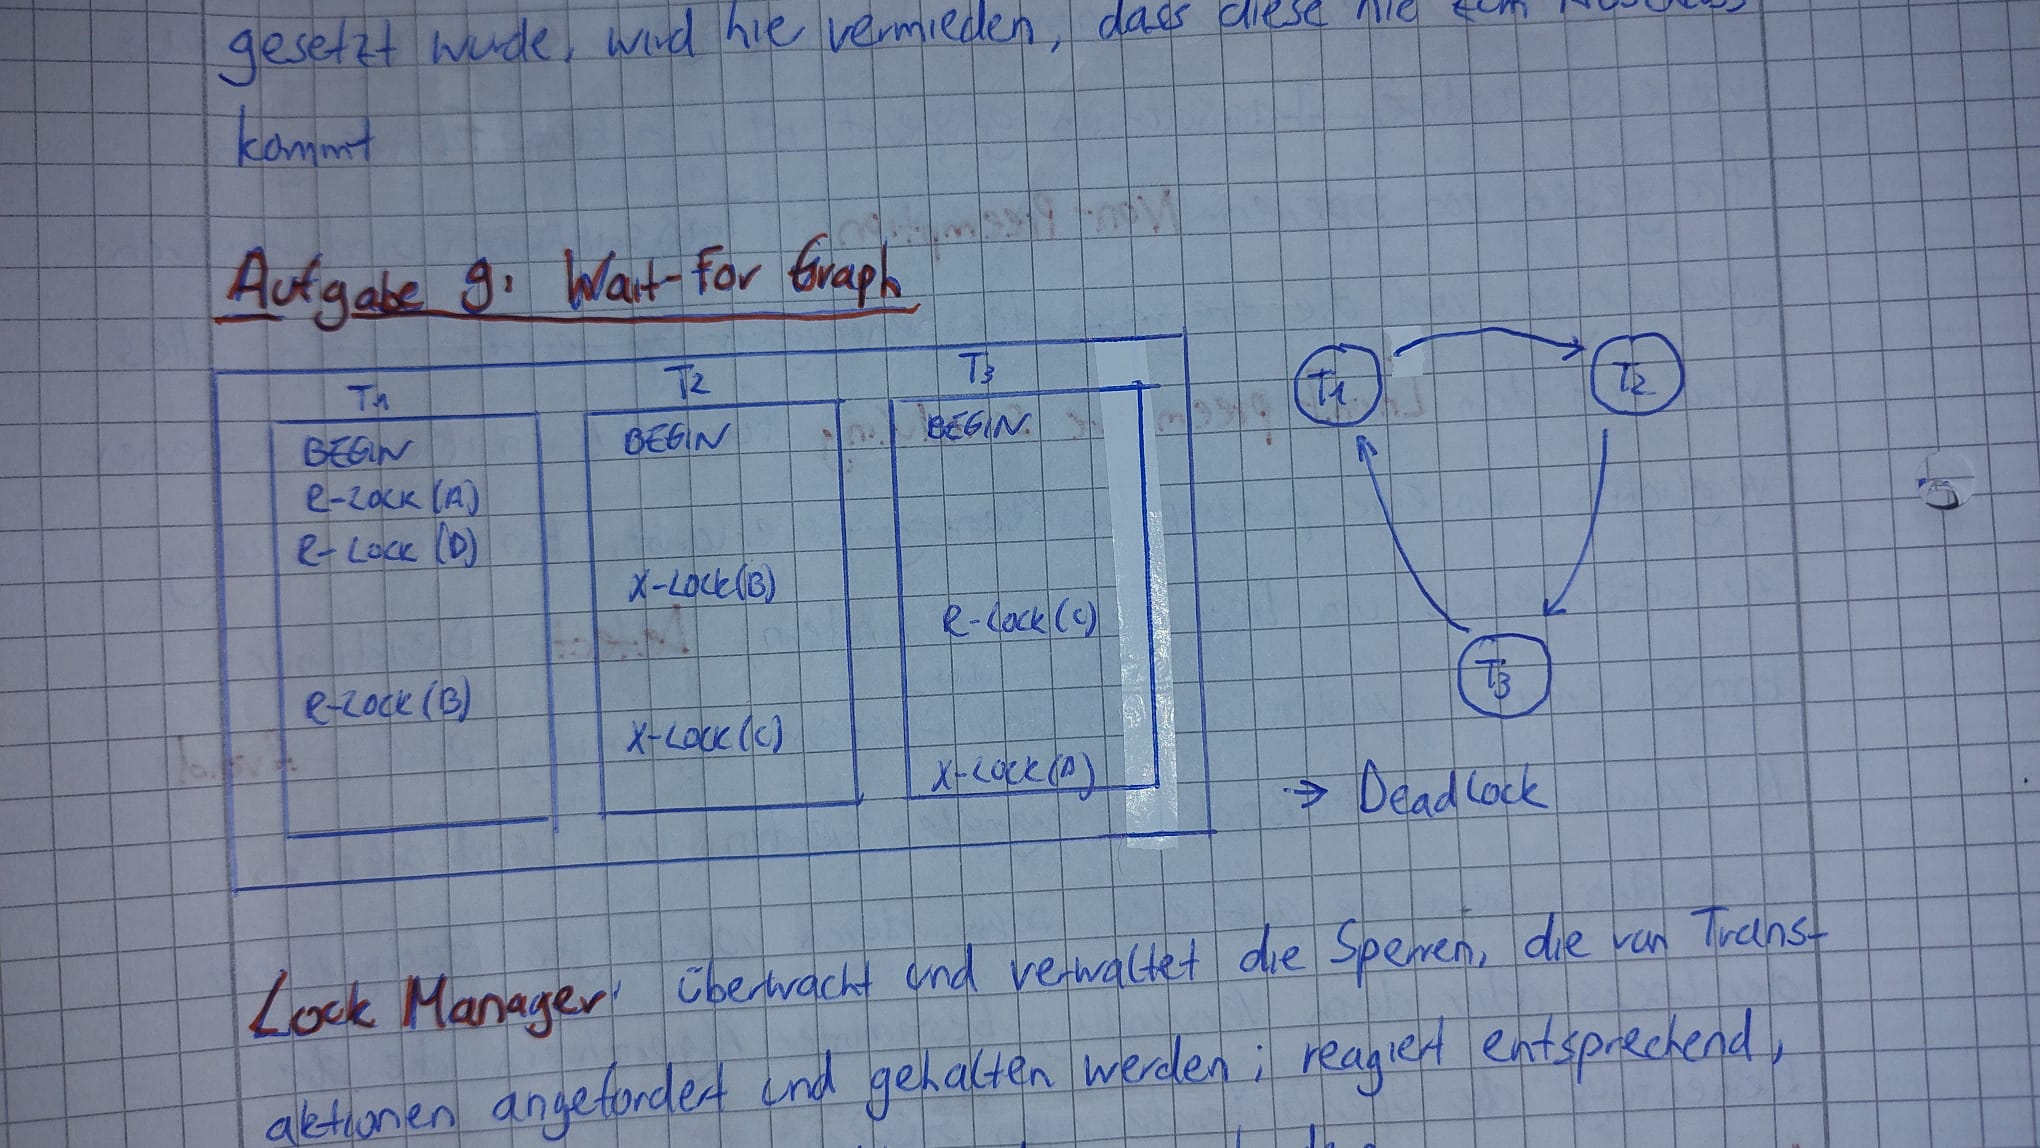 gesetzt wurde, wird hie vermieden, dass diese nie zum
kommt
Aufgabe 9: Wait-For Graph
T1 T2 T3
BEGIN BEGIN BEGIN
R-Lock (A)
R-Lock (D)
X-Lock(B)
R-Lock(C)
R-Lock(B)
X-Lock(C)
X-Lock(A)
T1 T2
T3
→ Deadlock
Lock Manager: überwacht und verwaltet die Sperren, die von Trans-
aktionen angefordert und gehalten werden; reagiert entsprechend,